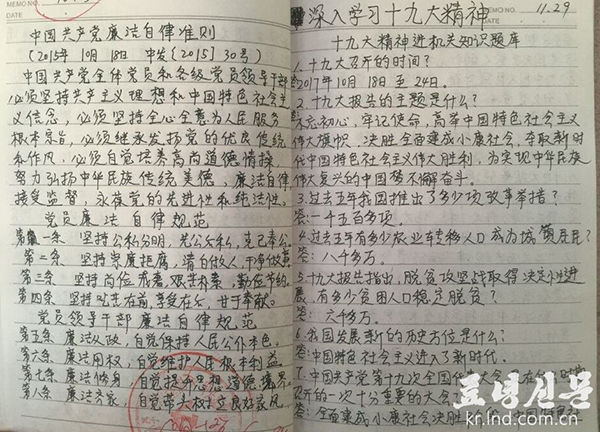 MEMO NO.
DATE
中国共产党廉洁自律准则
(2015年10月18日 中发[2015]30号)
中国共产党全体党员和各级党员领导干部
必须坚持共产主义理想和中国特色社会主
义信念，必须坚持全心全意为人民服务
根本宗旨，必须继承发扬党的优良传统
和作风，必须自觉培养高尚道德情操，
努力弘扬中华民族传统美德，廉洁自律，
接受监督，永葆党的先进性和纯洁性。
党员廉洁自律规范
第一条 坚持公私分明，先公后私，克己奉公。
第二条 坚持崇廉拒腐，清白做人，干净做事。
第三条 坚持尚俭戒奢，艰苦朴素，勤俭节约。
第四条 坚持吃苦在前，享受在后，甘于奉献。
党员领导干部廉洁自律规范
第五条 廉洁从政，自觉保持人民公仆本色。
第六条 廉洁用权，自觉维护人民根本利益。
第七条 廉洁修身，自觉提升思想道德境界。
第八条 廉洁齐家，自觉带头树立良好家风。
MEMO NO.
DATE
深入学习十九大精神 11.29
十九大精神进机关知识题库
1.十九大召开的时间?
2017年10月18日至24日.
2.十九大报告的主题是什么?
不忘初心，牢记使命，高举中国特色社会主义
伟大旗帜，决胜全面建成小康社会，夺取新时
代中国特色社会主义伟大胜利，为实现中华民族
伟大复兴的中国梦不懈奋斗。
3.过去五年我国推出了多少项改革举措?
答:一千五百多项。
4.过去五年有多少农业转移人口成为城镇居民?
答:八千多万。
5.十九大报告指出，脱贫攻坚战取得决定性进
展，有多少贫困人口稳定脱贫?
答:六千多万.
6.我国发展新的历史方位是什么?
答:中国特色社会主义进入了新时代.
7.中国共产党第十九次全国代表大会，是在什么时期
召开的一次十分重要的大会
答:全面建成小康社会决胜阶段、中国特色
료녕신문
kr.lnd.com.cn